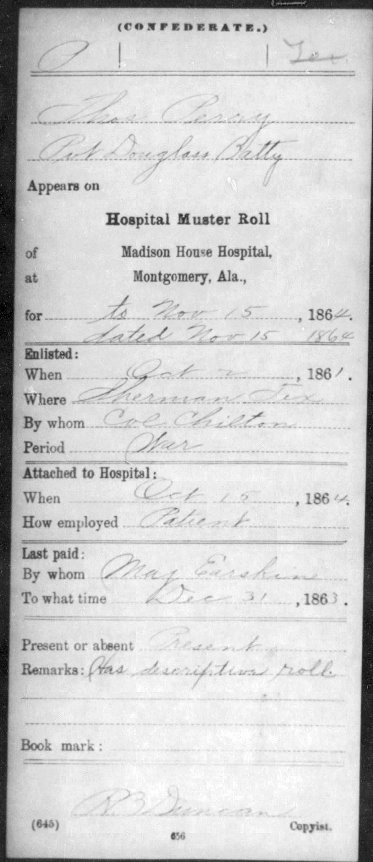 (CONFEDERATE.)
P | | Tex.
Thos Percy
Pvt Douglass Batty
Appears on
Hospital Muster Roll
of Madison House Hospital,
at Montgomery, Ala.,
for to Nov 15, 1864.
dated Nov 15 1864
Enlisted:
When Oct 2, 1861.
Where Sherman Tex
By whom Col Chilton
Period War
Attached to Hospital:
When Oct 15, 1864.
How employed Patient
Last paid:
By whom Maj Erskin
To what time Dec 31, 1863.
Present or absent Present
Remarks: Has descriptive roll.
Book mark:
R B Duncan
(645) Copyist.
656